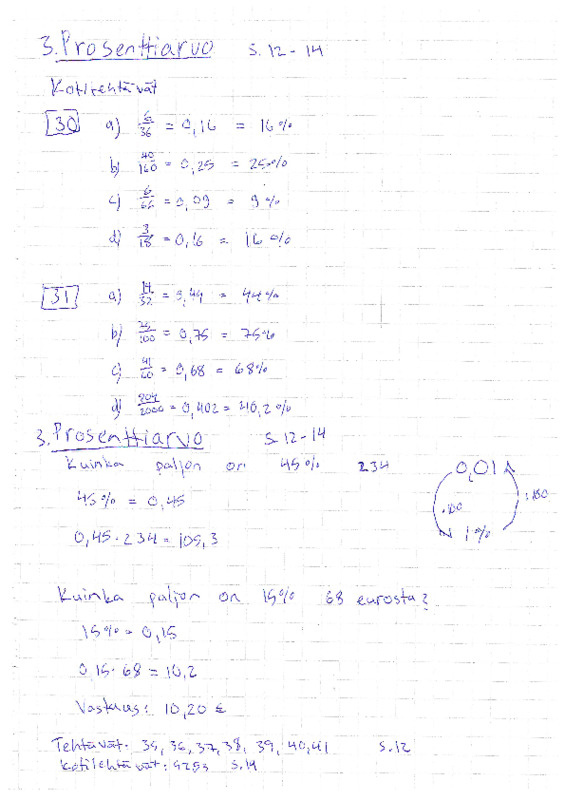 3. Prosenttiarvo s. 12-14
Kotitehtävät
30 a) 6/36 = 0,16 = 16%
b) 40/160 = 0,25 = 25%
c) 6/66 = 0,09 = 9%
d) 3/18 = 0,16 = 16%
31 a) 14/32 = 0,44 = 44%
b) 75/100 = 0,75 = 75%
c) 41/60 = 0,68 = 68%
d) 804/2000 = 0,402 = 40,2%
3. Prosenttiarvo s. 12-14
Kuinka paljon on 45% 234
45% = 0,45
0,45 · 234 = 105,3
0,01
·100
:100
1%
Kuinka paljon on 15% 68 eurosta?
15% = 0,15
0,15 · 68 = 10,2
Vastaus: 10,20 €
Tehtävät: 35, 36, 37, 38, 39, 40, 41 s.12
Kotitehtävät: s.14